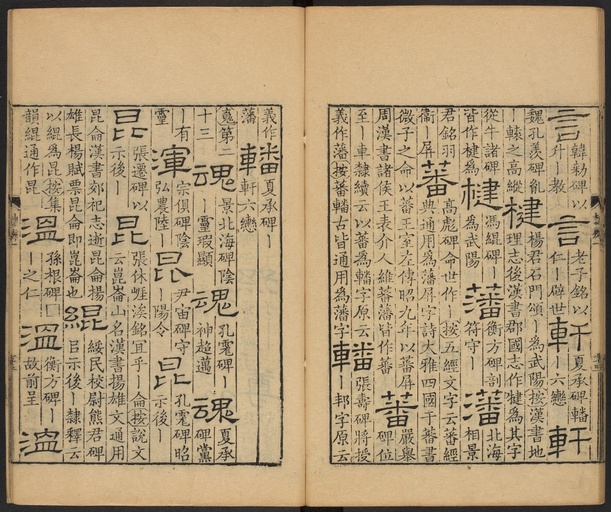 言韓勅碑以升｜教言老子銘以仁｜辟世軒夏承碑轓｜六轡軒
魏孔羨碑亂｜轅之高縱楗楊君石門頌｜為武陽按漢書地理志後漢書郡國志作楗為其字
從牛諸碑皆作楗為楗馮緄碑｜為武陽藩衡方碑剖符守｜藩北海相景
君銘羽衞｜屏蕃高彪碑命世作｜按五經文字云蕃經典通用為藩屏字詩大雅四國于蕃書
微子之命以蕃王室左傳昭九年以蕃屏周漢書諸侯王表介人維蕃藩皆作蕃蕃嚴舉碑位
至｜車隸續云以蕃為轓字原云義作藩按蕃轓古皆通用為藩字轓張壽碑將授｜邦字原云
義作藩轓夏承碑｜軒六轡
䰟第二十三魂景北海碑陰｜靈瑕顯魂孔宙碑｜神超邁魂夏承碑黨
｜有靈渾宗俱碑陰弘農｜昆尹宙碑守｜陽令昆孔宙碑昭示後｜
昆張遷碑以示後｜昆張休崖涘銘宜乎｜侖按說文云崑崙山名漢書揚雄文通用
昆侖漢書郊祀志逝昆侖揚雄長楊賦票昆侖即崑崙也緄綏民校尉熊君碑㠯示後｜隸釋云
以緄為昆按集韻緄通作昆溫孫根碑囗｜之仁溫衡方碑｜故前呈｜溫